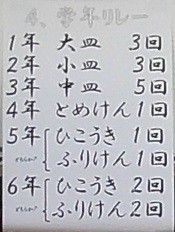 4、学年リレー
1年 大皿 3回
2年 小皿 3回
3年 中皿 5回
4年 とめけん 1回
5年 ひこうき 1回
ふりけん 1回
6年 ひこうき 2回
ふりけん 2回